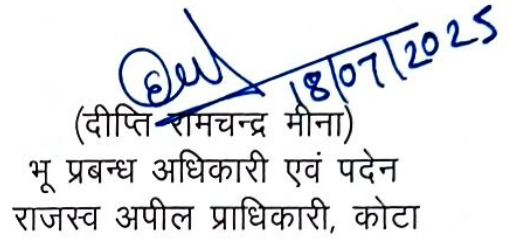 18/07/2025
(दीप्ति रामचन्द्र मीना)
भू प्रबन्ध अधिकारी एवं पदेन
राजस्व अपील प्राधिकारी, कोटा